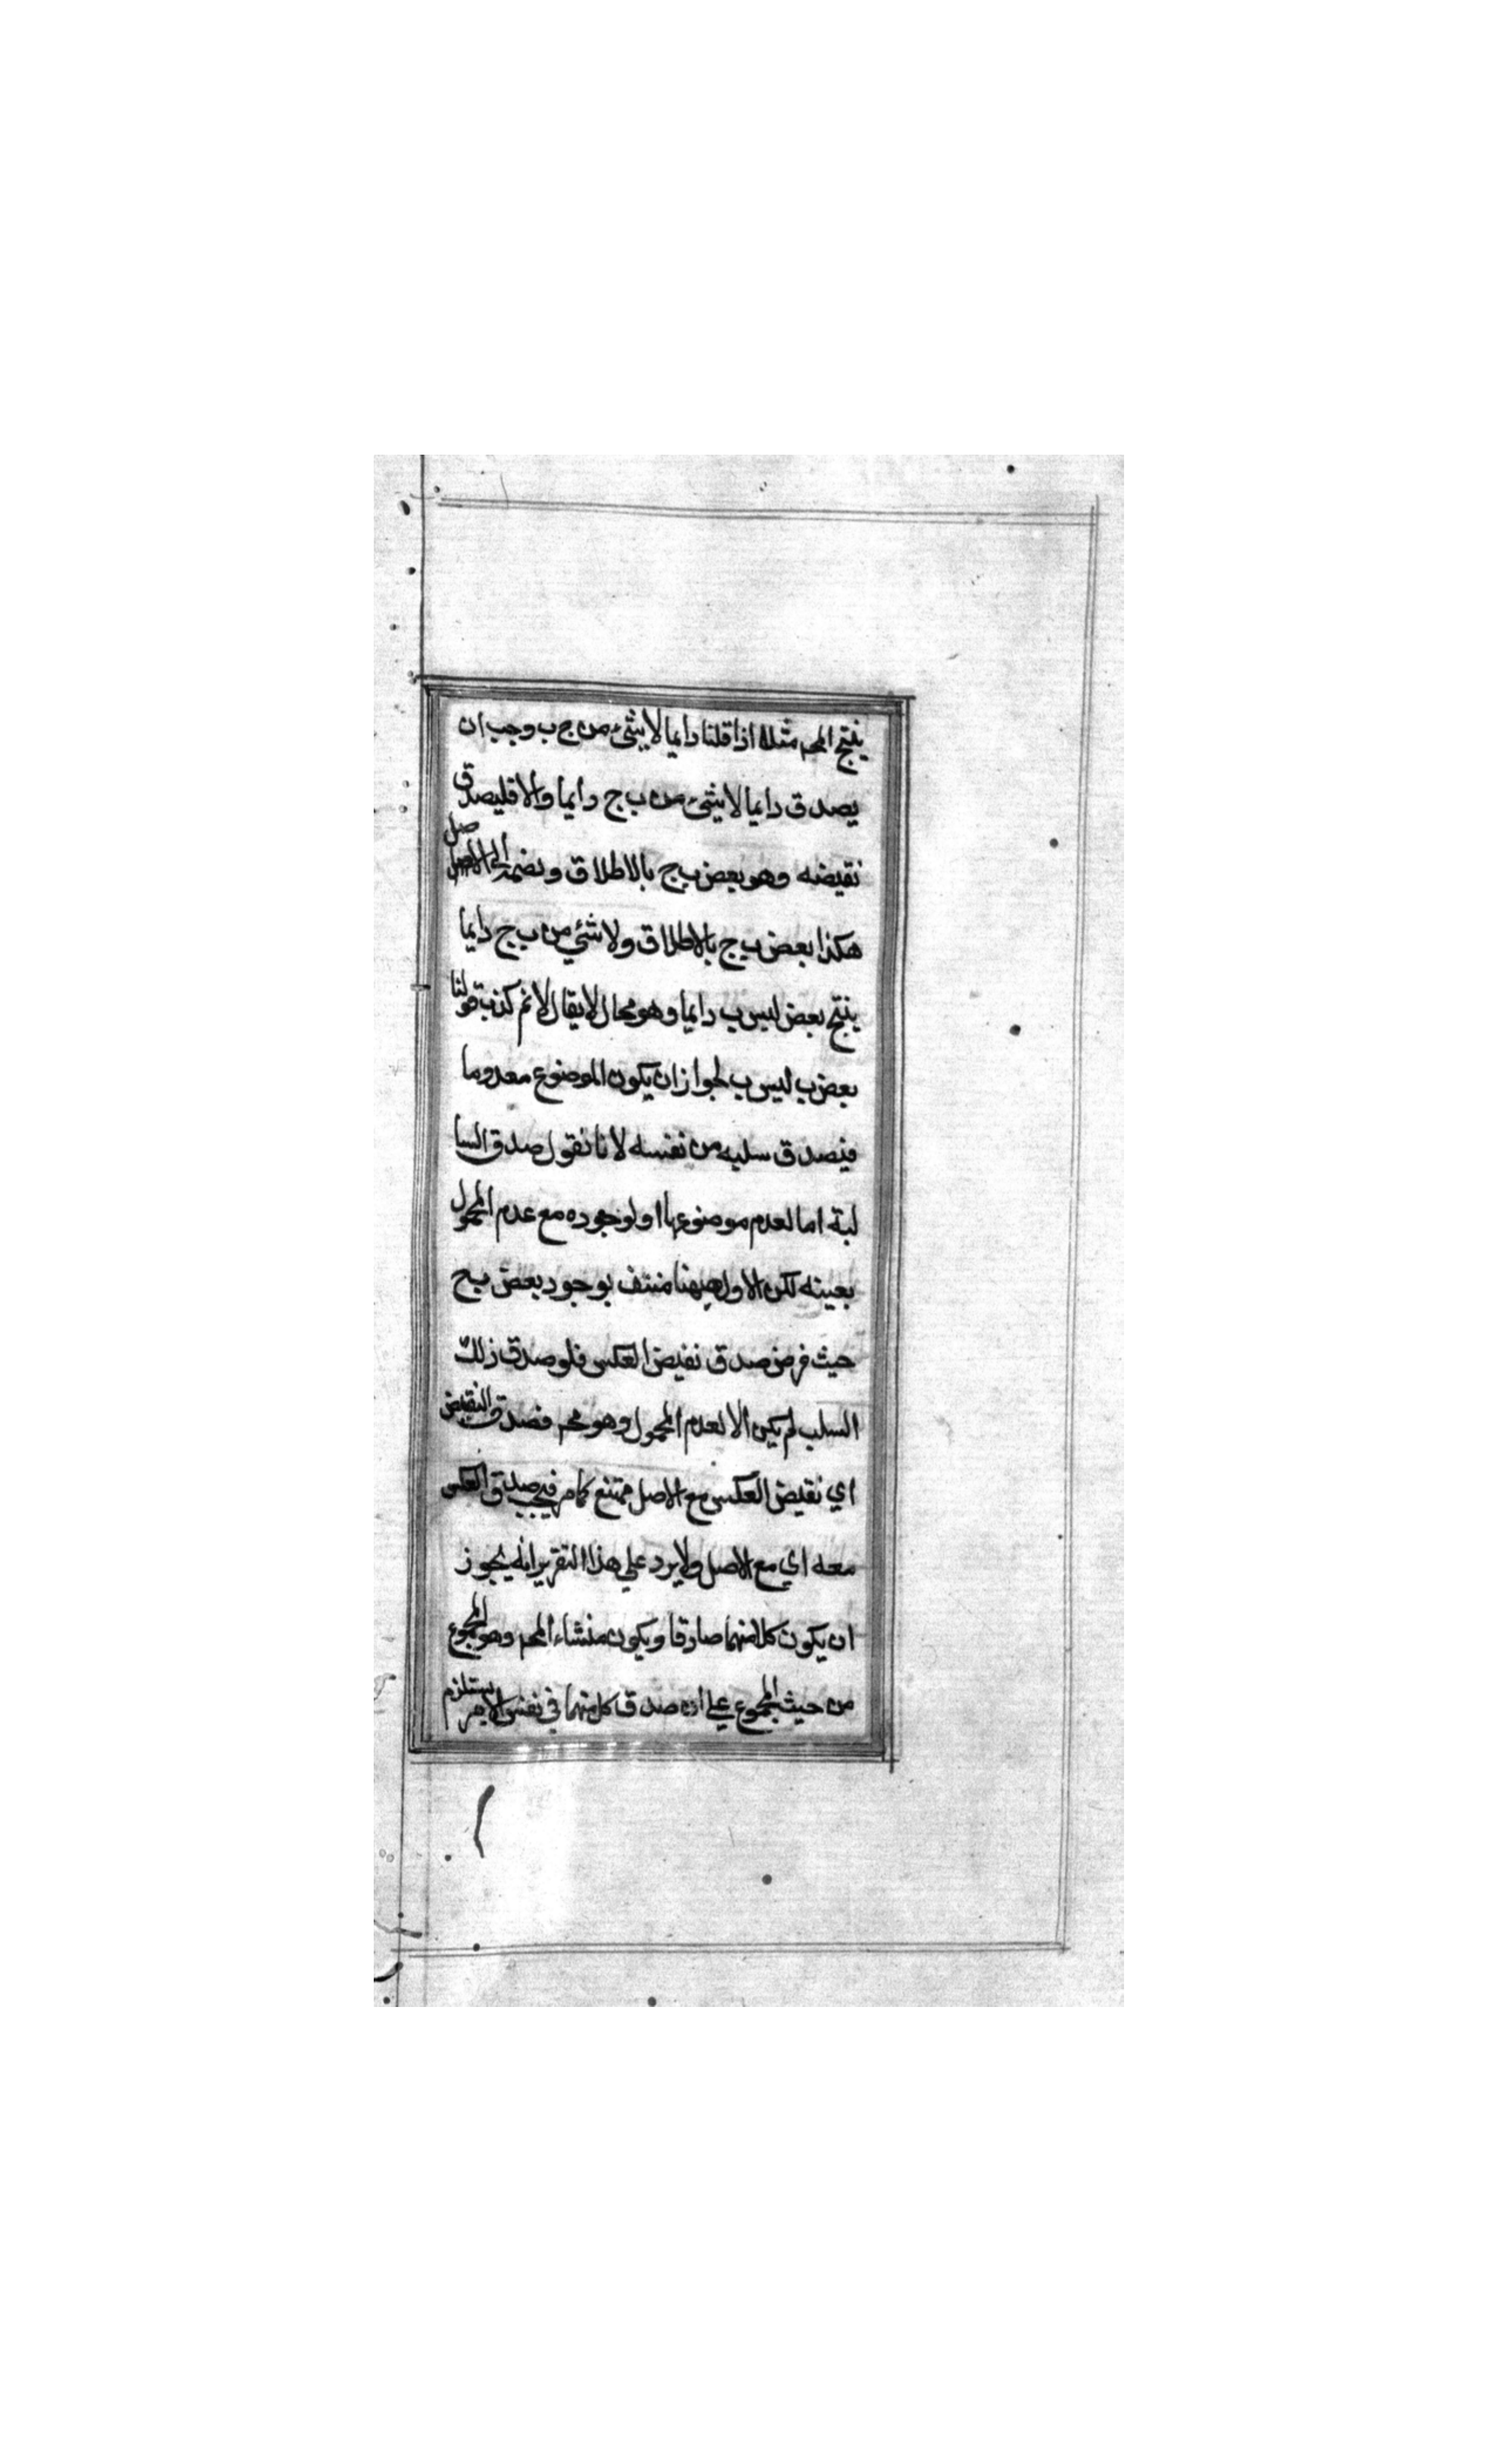 ينتج المحـ مثلا اذا قلنا دايما لا شئ من ج ب وجب ان
يصدق دايما لا شئ من ب ج دايما والا فليصدق
نقيضه وهو بعض ب ج بالاطلاق ونضمه الى الاصل
هكذا بعض ب ج بالاطلاق ولا شئ من ب ج دايما
ينتج بعض ليس ب دايما وهو محال لا يقال لا نم كذب قولنا
بعض ب ليس ب لجواز ان يكون الموضوع معدوما
فيصدق سلبه من نفسه لانا نقول صدق السا
لبة اما لعدم موضوعها او لوجوده مع عدم المحمول
بعينه لكن الاول ههنا منتف بوجود بعض ب ج
حيث فرض صدق نقيض العكس فلو صدق ذلك
السلب لم يكن الا لعدم المحمول وهو محـ فصدق النقيض
اي نقيض العكس مع الاصل ممتنع كما مر فيجب صدق العكس
معه اي مع الاصل ولا يرد علي هذا التقرير انه يجوز
ان يكون كلا منهما صادقا ويكون منشاء المحـ وهو المجموع
من حيث المجموع علي ان صدق كل منهما في نفس الامر يستلزم